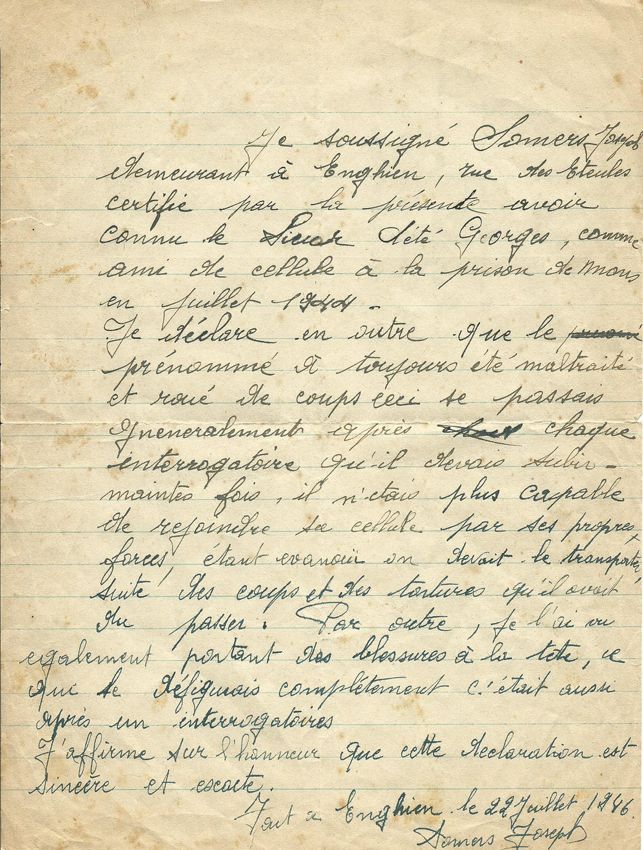 Je soussigné Somers Joseph
demeurant à Enghien, rue des Eteules
certifie par la présente avoir
connu le Sieur Lété Georges, comme
ami de cellule à la prison de Mons
en juillet 1944 -
Je déclare en outre que le
prénommé a toujours été maltraité
et roué de coups ceci se passais
gueneralement après chaque
interrogatoire qu'il devais subir -
maintes fois, il n'étais plus capable
de rejoindre sa cellule par ses propres
forces, étant evanoui on devait le transporter
suite des coups et des tortures qu'il avait
du passer. Par outre, je l'ai vu
egalement portant des blessures à la tête, ce
qui le défigurais complètement c'était aussi
après un interrogatoires
J'affirme sur l'honneur que cette declaration est
sincère et exacte.
Fait a Enghien le 22 Juillet 1946.
Somers Joseph